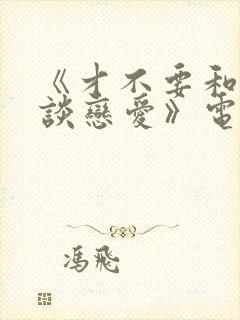 《才不要和
談戀愛》電
馮飛